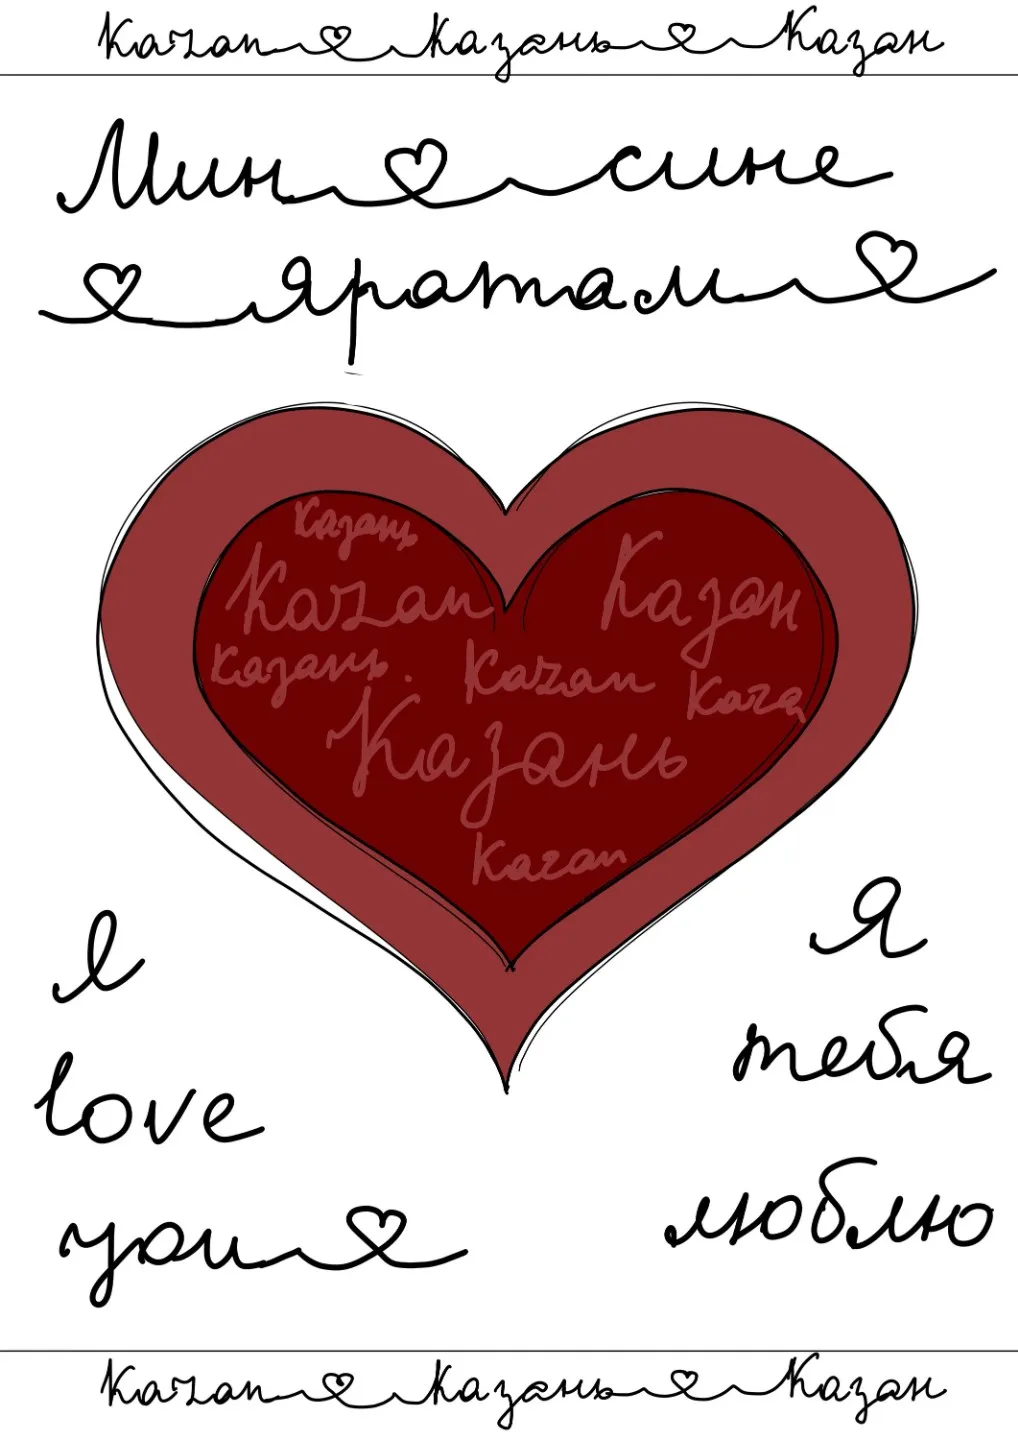 Kazan Казань Казан
Мин сине
яратам
Казань
Kazan Казан
Казань Kazan Каza
Казань
Kazan
I Я
love тебя
you люблю
Kazan Казань Казан